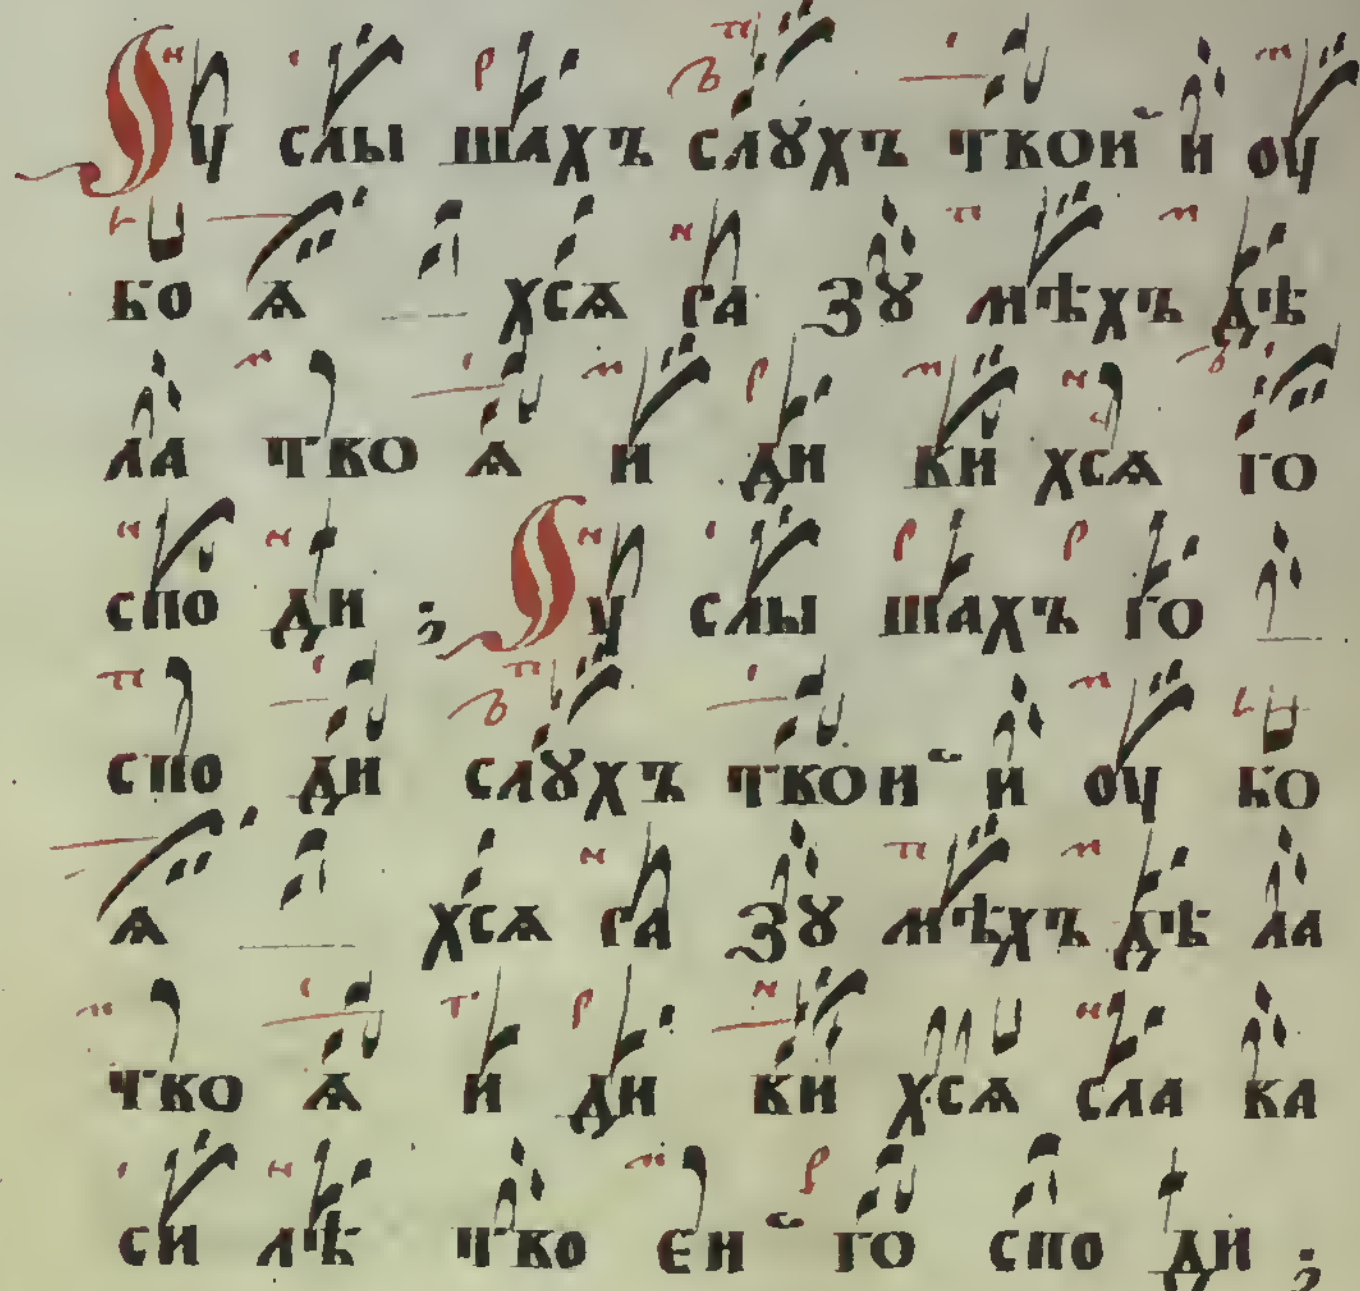 Оу слы шахъ слꙋхъ твои и оу
бо ѧ хсѧ ра зꙋ мѣхъ дѣ
ла тво ѧ и ди ви хсѧ го
спо ди ; Оу слы шахъ го
спо ди слꙋхъ твои и оу бо
ѧ хсѧ ра зꙋ мѣхъ дѣ ла
тво ѧ и ди ви хсѧ сла ва
си лѣ тво еи го спо ди ;